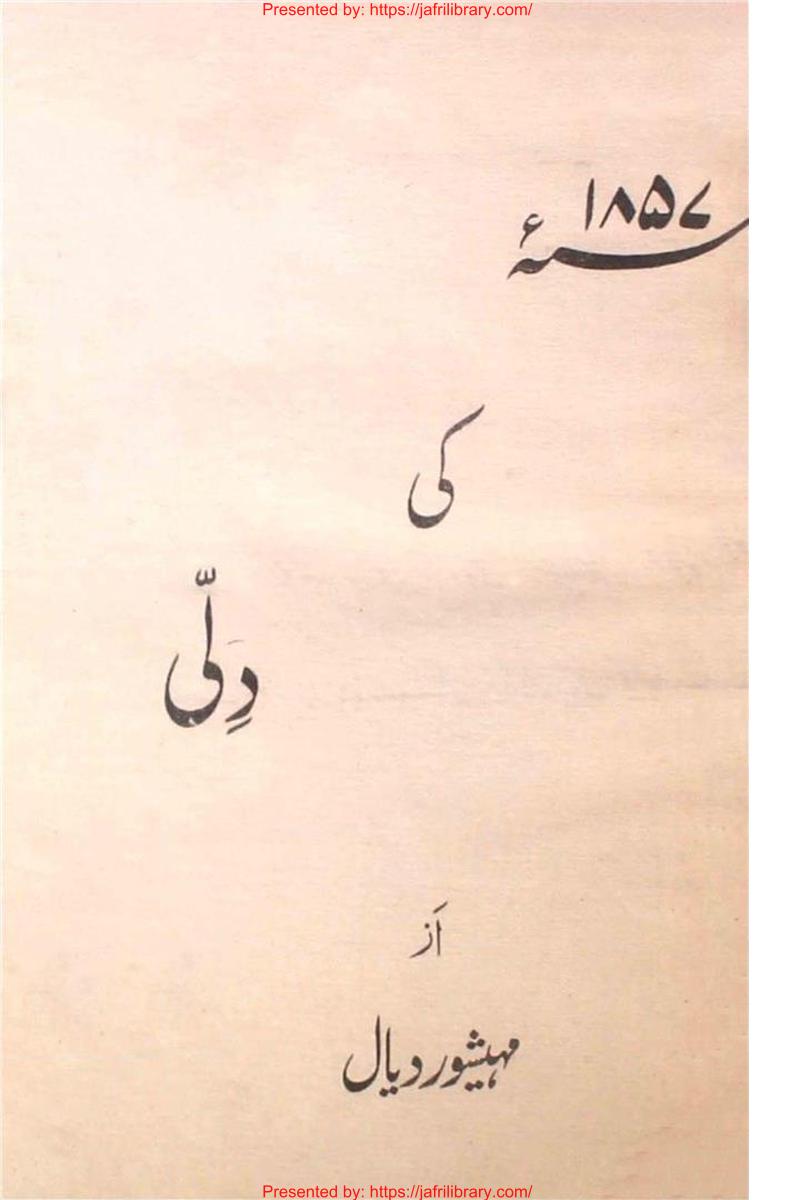 Presented by: https://jafrilibrary.com/
سنہ ۱۸۵۷ء
کی
دِلّی
اَز
مہیشور دیال
Presented by: https://jafrilibrary.com/